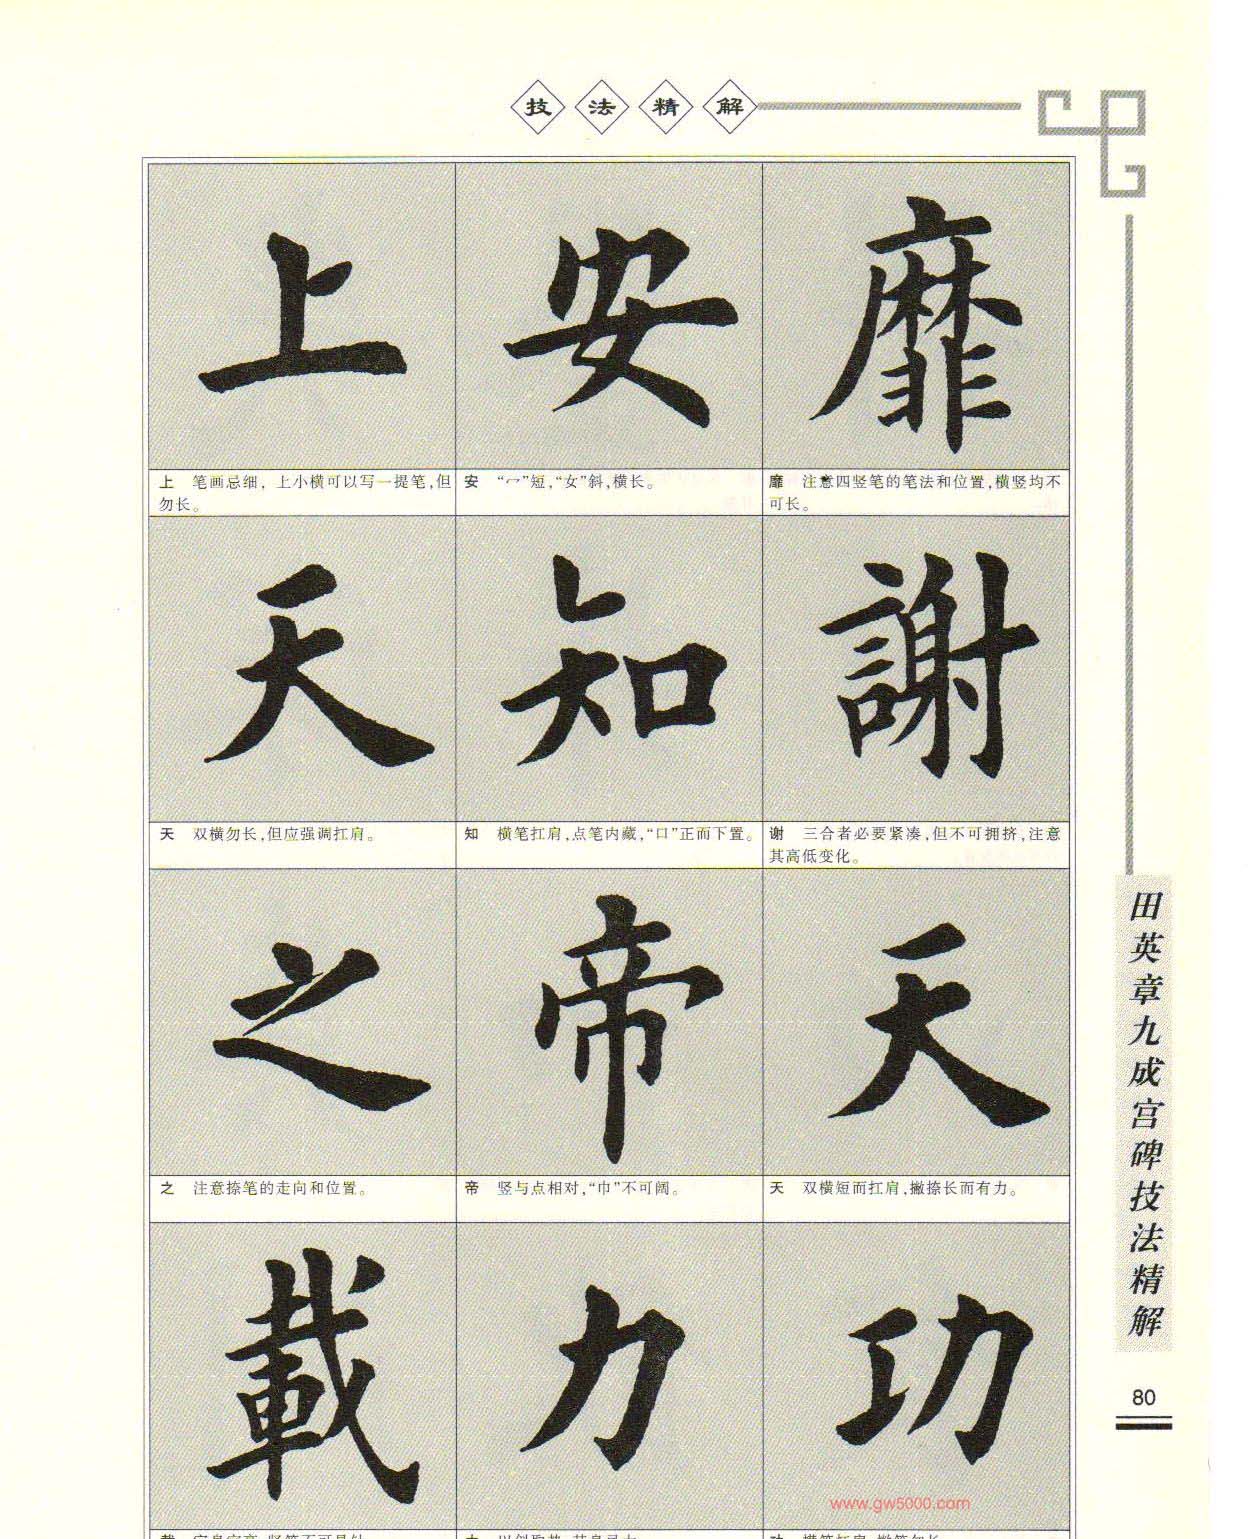 技法精解
上 安 靡
上 笔画忌细，上小横可以写一提笔，但
勿长。
安 “冖”短，“女”斜，横长。
靡 注意四竖笔的笔法和位置，横竖均不
可长。
天 知 謝
天 双横勿长，但应强调扛肩。
知 横笔扛肩，点笔内藏，“口”正而下置。
谢 三合者必要紧凑，但不可拥挤，注意
其高低变化。
之 帝 天
之 注意捺笔的走向和位置。
帝 竖与点相对，“巾”不可阔。
天 双横短而扛肩，撇捺长而有力。
載 力 功
田英章九成宫碑技法精解
80
www.gw5000.com